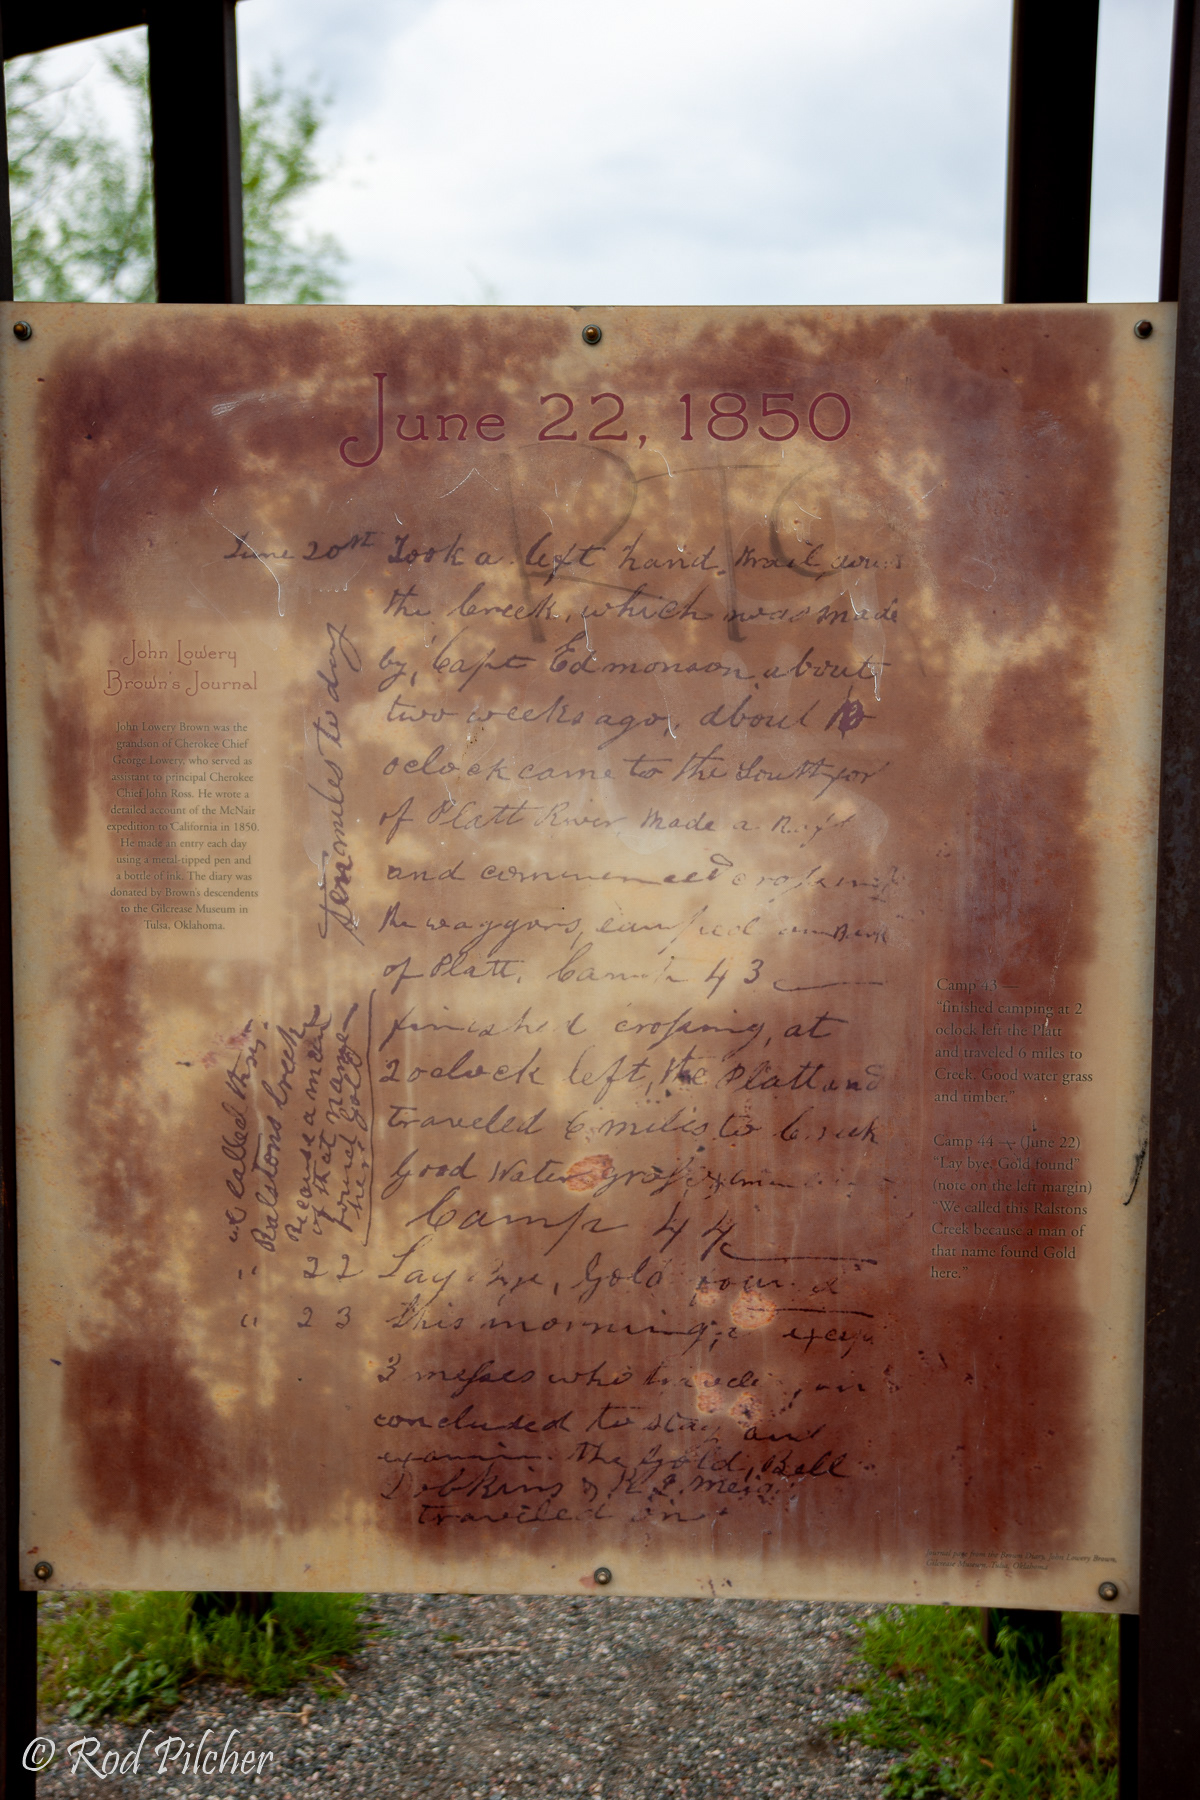 June 22, 1850
June 20st Took a left hand trail down
the Creek, which was made
by, Capt Edmonson about
two weeks ago, about
oclock came to the South for
of Platt River Made a
and commenced crossing
the waggons, camped on Bank
of Platt. Camp 43
finished crossing, at
2 oclock left, the Platt and
traveled 6 miles to Creek
Good Water grass &
Camp 44
" 22 Lay Bye, Gold found
" 23 this morning, excep
3 messes who , and
concluded to stay and
examine the Gold, Bell
Dobkins &
traveled on
Ten miles to day
we called this
Ralstons Creek
Because a man
of that name
found Gold
here
John Lowery
Brown's Journal
John Lowery Brown was the
grandson of Cherokee Chief
George Lowery, who served as
assistant to principal Cherokee
Chief John Ross. He wrote a
detailed account of the McNair
expedition to California in 1850.
He made an entry each day
using a metal-tipped pen and
a bottle of ink. The diary was
donated by Brown's descendents
to the Gilcrease Museum in
Tulsa, Oklahoma.
Camp 43 —
"finished camping at 2
oclock left the Platt
and traveled 6 miles to
Creek. Good water grass
and timber."
Camp 44 — (June 22)
"Lay bye. Gold found"
(note on the left margin)
"We called this Ralstons
Creek because a man of
that name found Gold
here."
Journal page from the John Lowery Brown,
Gilcrease Museum, Tulsa, Oklahoma
© Rod Pilcher